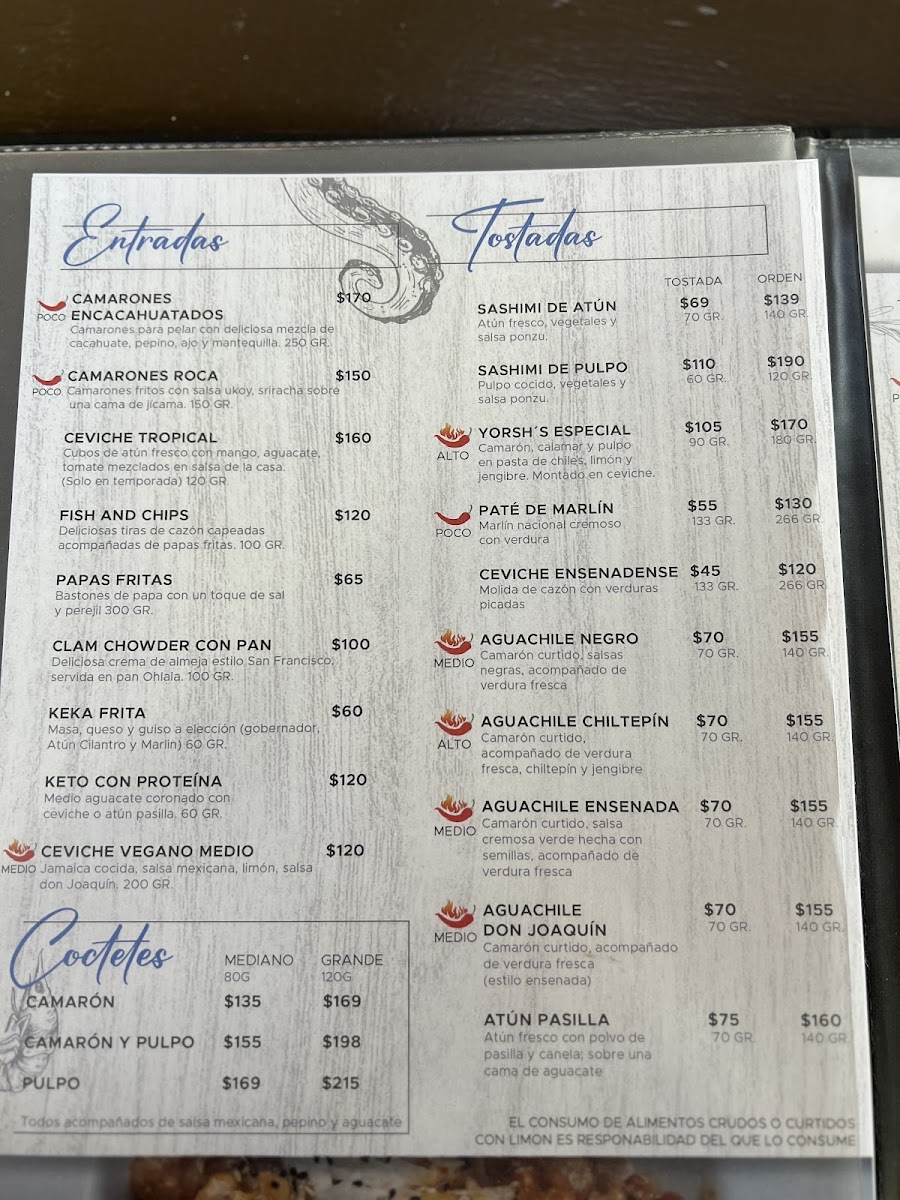 Entradas
CAMARONES $170
POCO ENCACAHUATADOS
Camarones para pelar con deliciosa mezcla de
cacahuate, pepino, ajo y mantequilla. 250 GR.
CAMARONES ROCA $150
POCO Camarones fritos con salsa ukoy, sriracha sobre
una cama de jícama. 150 GR.
CEVICHE TROPICAL $160
Cubos de atún fresco con mango, aguacate,
tomate mezclados en salsa de la casa.
(Solo en temporada) 120 GR
FISH AND CHIPS $120
Deliciosas tiras de cazón capeadas
acompañadas de papas fritas. 100 GR.
PAPAS FRITAS $65
Bastones de papa con un toque de sal
y perejil 300 GR.
CLAM CHOWDER CON PAN $100
Deliciosa crema de almeja estilo San Francisco,
servida en pan Ohlala. 100 GR.
KEKA FRITA $60
Masa, queso y guiso a elección (gobernador,
Atún Cilantro y Marlin) 60 GR.
KETO CON PROTEÍNA $120
Medio aguacate coronado con
ceviche o atún pasilla. 60 GR.
CEVICHE VEGANO MEDIO $120
MEDIO Jamaica cocida, salsa mexicana, limón, salsa
don Joaquín. 200 GR.
Coctetes
MEDIANO GRANDE
80G 120G
CAMARÓN $135 $169
CAMARÓN Y PULPO $155 $198
PULPO $169 $215
Todos acompañados de salsa mexicana, pepino y aguacate
Tostadas
TOSTADA ORDEN
SASHIMI DE ATÚN $69 $139
Atún fresco, vegetales y 70 GR. 140 GR.
salsa ponzu.
SASHIMI DE PULPO $110 $190
Pulpo cocido, vegetales y 60 GR. 120 GR.
salsa ponzu.
YORSH´S ESPECIAL $105 $170
ALTO Camarón, calamar y pulpo 90 GR. 180 GR.
en pasta de chiles, limón y
jengibre. Montado en ceviche.
PATÉ DE MARLÍN $55 $130
POCO Marlín nacional cremoso 133 GR. 266 GR
con verdura
CEVICHE ENSENADENSE $45 $120
Molida de cazón con verduras 133 GR. 266 GR
picadas
AGUACHILE NEGRO $70 $155
MEDIO Camarón curtido, salsas 70 GR. 140 GR.
negras, acompañado de
verdura fresca
AGUACHILE CHILTEPÍN $70 $155
ALTO Camarón curtido, 70 GR. 140 GR.
acompañado de verdura
fresca, chiltepín y jengibre
AGUACHILE ENSENADA $70 $155
MEDIO Camarón curtido, salsa 70 GR. 140 GR.
cremosa verde hecha con
semillas, acompañado de
verdura fresca
AGUACHILE $70 $155
MEDIO DON JOAQUÍN 70 GR. 140 GR.
Camarón curtido, acompañado
de verdura fresca
(estilo ensenada)
ATÚN PASILLA $75 $160
Atún fresco con polvo de 70 GR. 140 GR
pasilla y canela; sobre una
cama de aguacate
EL CONSUMO DE ALIMENTOS CRUDOS O CURTIDOS
CON LIMON ES RESPONSABILIDAD DEL QUE LO CONSUME